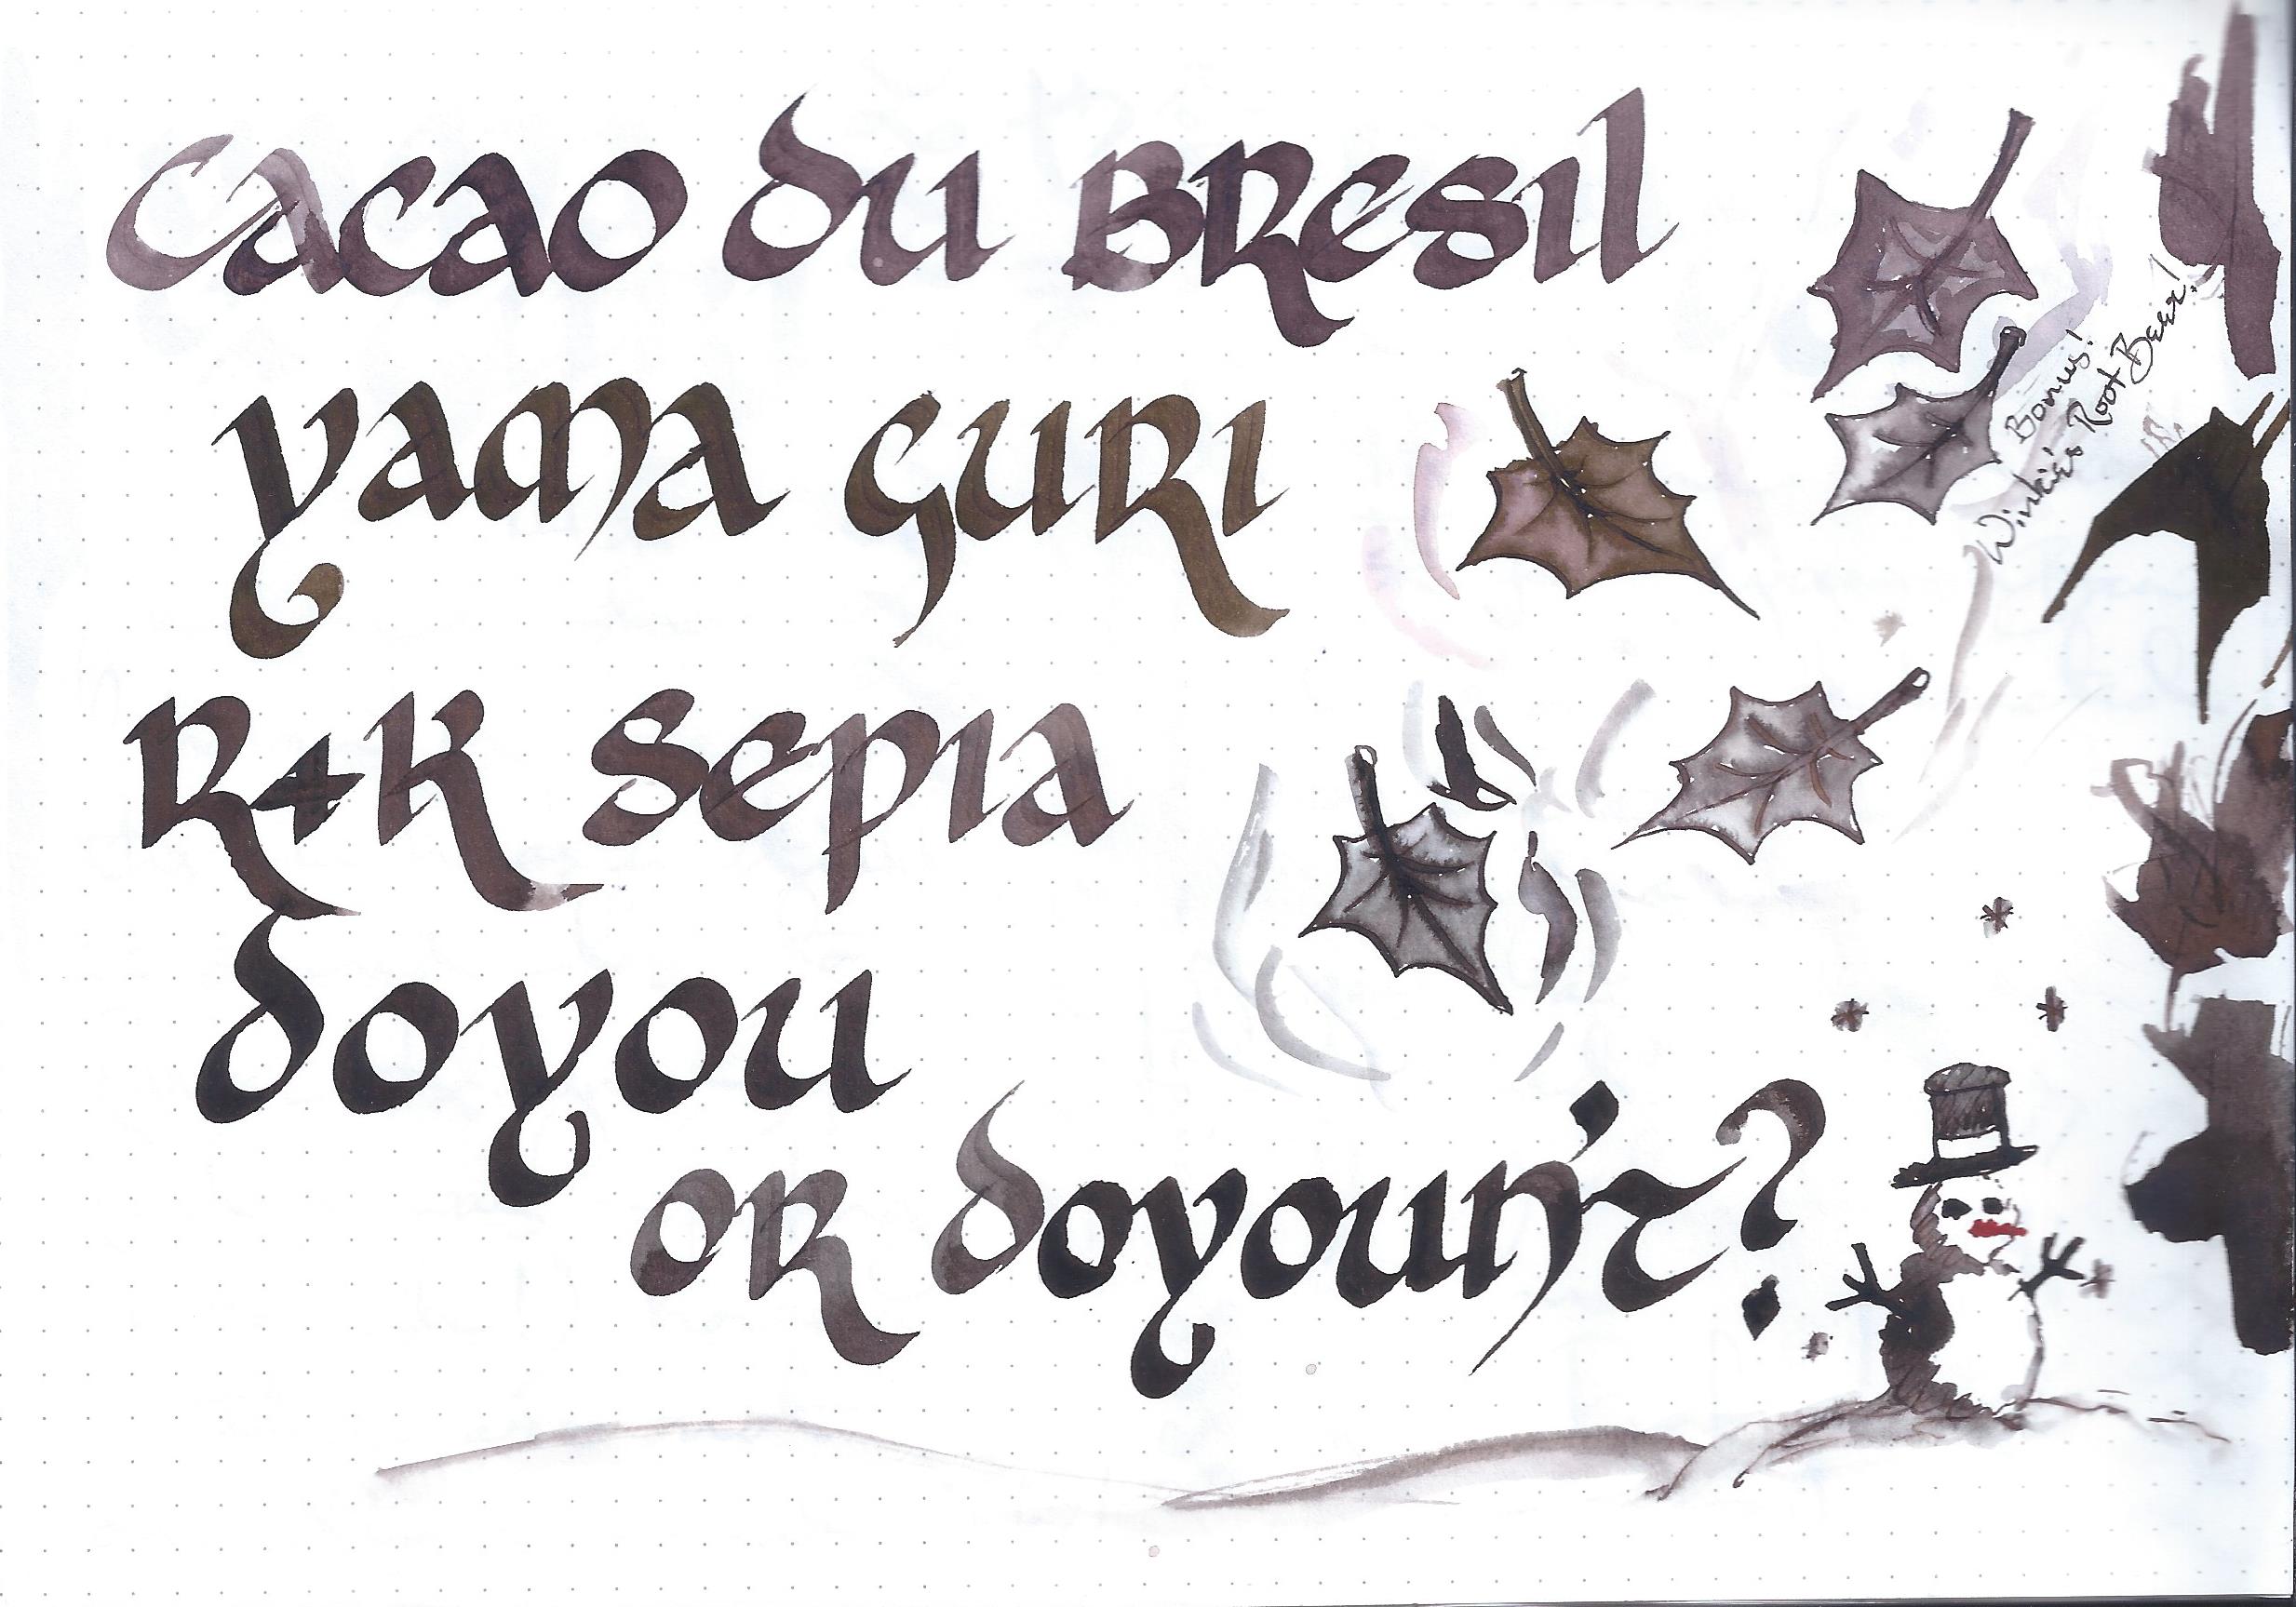 Cacao du Bresil
Yama Guri
R+K Sepia
Doyou
or doyoun't?
Bonus!
Winkie's Root Beer!